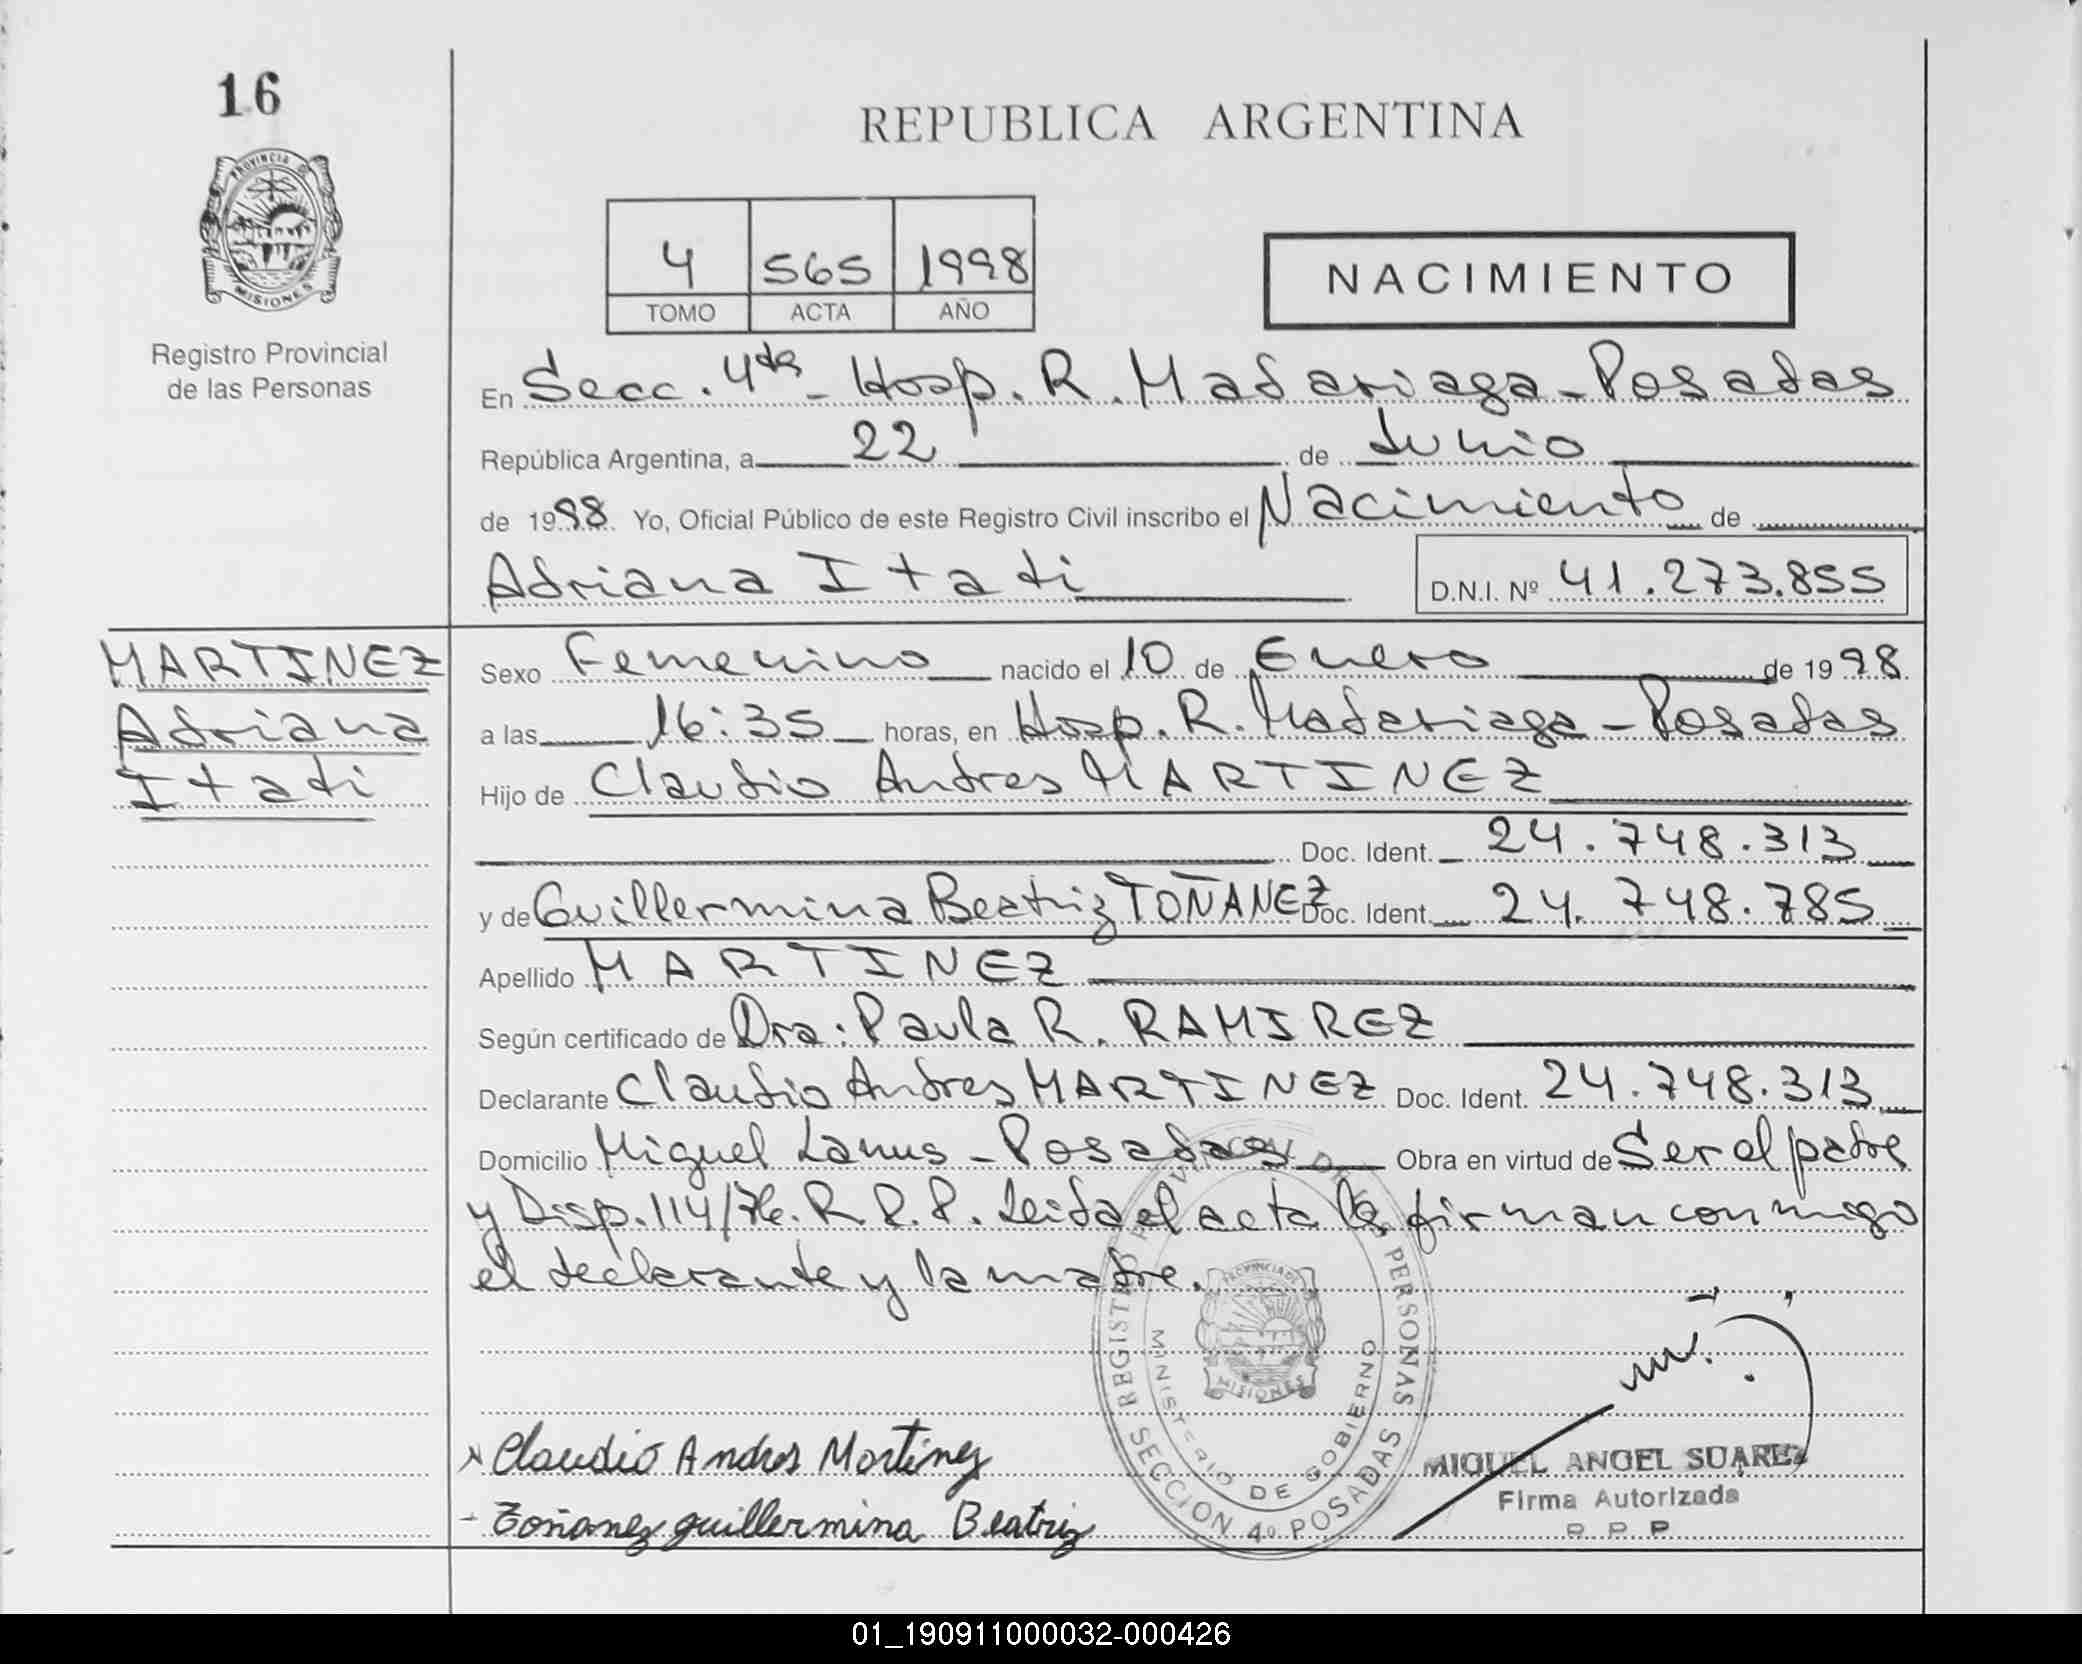 16
REPUBLICA ARGENTINA
PROVINCIA DE
MISIONES
Registro Provincial
de las Personas
4 565 1998
TOMO ACTA AÑO
NACIMIENTO
En Secc. 4ta - Hosp. R. Madariaga - Posadas
República Argentina, a 22 de Junio
de 1998 Yo, Oficial Público de este Registro Civil inscribo el Nacimiento de
Adriana Itati D.N.I. Nº 41.273.855
MARTINEZ
Adriana
Itati
Sexo Femenino nacido el 10 de Enero de 1998
a las 16:35 horas, en Hosp. R. Madariaga - Posadas
Hijo de Claudio Andres MARTINEZ
Doc. Ident. 24.748.313
y de Guillermina Beatriz TOÑANEZ Doc. Ident. 24.748.785
Apellido MARTINEZ
Según certificado de Dra: Paula R. RAMIREZ
Declarante Claudio Andres MARTINEZ Doc. Ident. 24.748.313
Domicilio Miguel Lanus - Posadas Obra en virtud de Ser el padre
y Disp. 114/76. R.P.P. Leida el acta la firman conmigo
el declarante y la madre.
REGISTRO PROVINCIAL DE LAS PERSONAS
SECCION 4º POSADAS
MINISTERIO DE GOBIERNO
PROVINCIA DE
MISIONES
Claudio Andres Martinez
Toñanez guillermina Beatriz
MIGUEL ANGEL SUAREZ
Firma Autorizada
R. P. P.
01_190911000032-000426